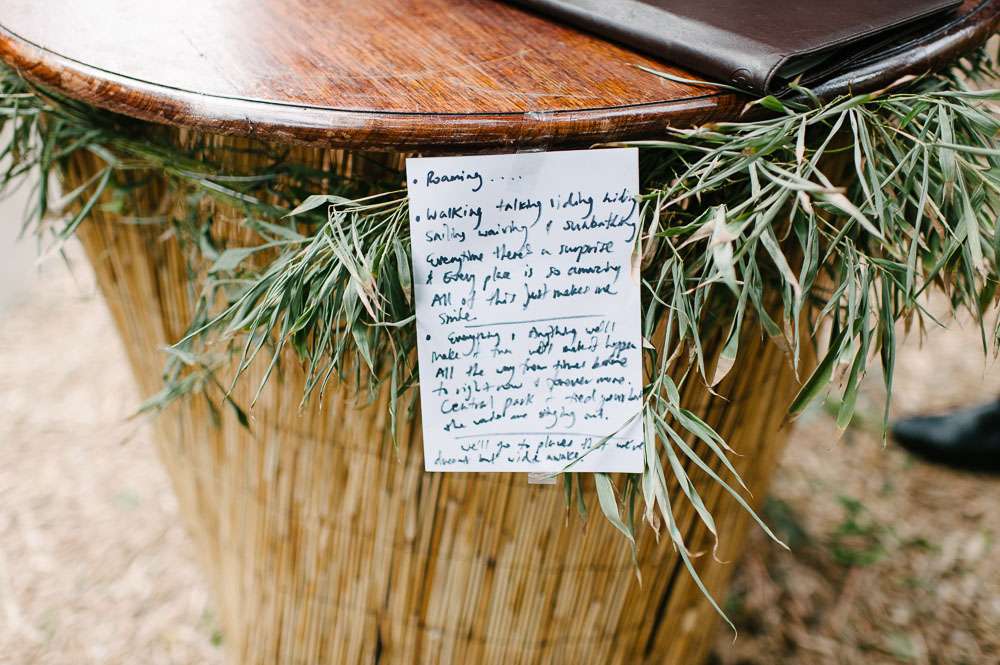 • Roaming....
• Walking talking riding hiking
Sailing waiving & sunbathing
Everytime there's a surprise
& Every place is so amazing
All of this Just makes me
smile.
• Everything & Anything we'll
Make it fun we'll make it happen
All the way from times before
to right now & forever more.
Central park
she
we'll go to places that we've
dreamt but wide awake.